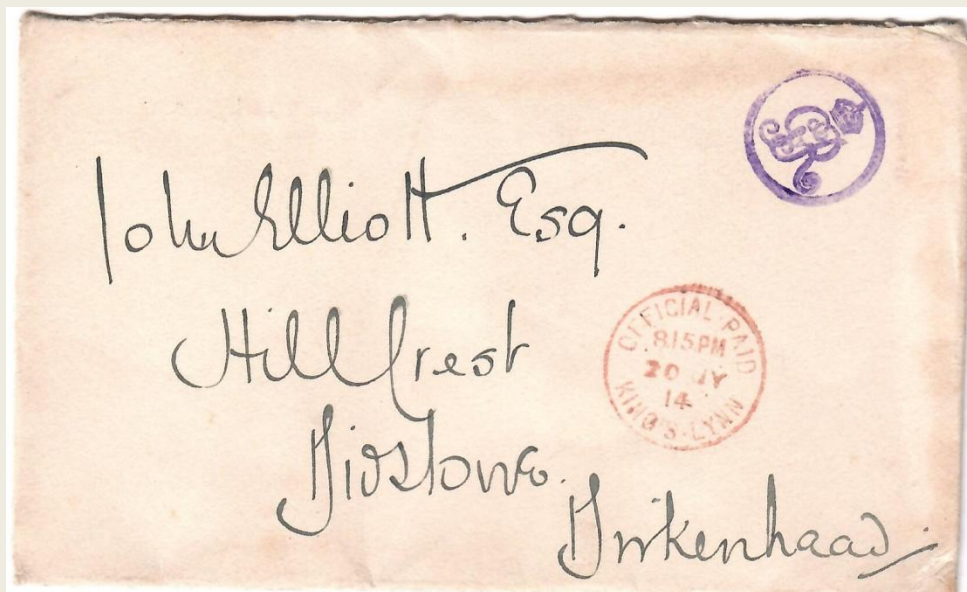 John Elliott. Esq.
Hill Crest
Bidstone.
Birkenhead.
OFFICIAL·PAID
8.15PM
20 JY
14
KING'S·LYNN